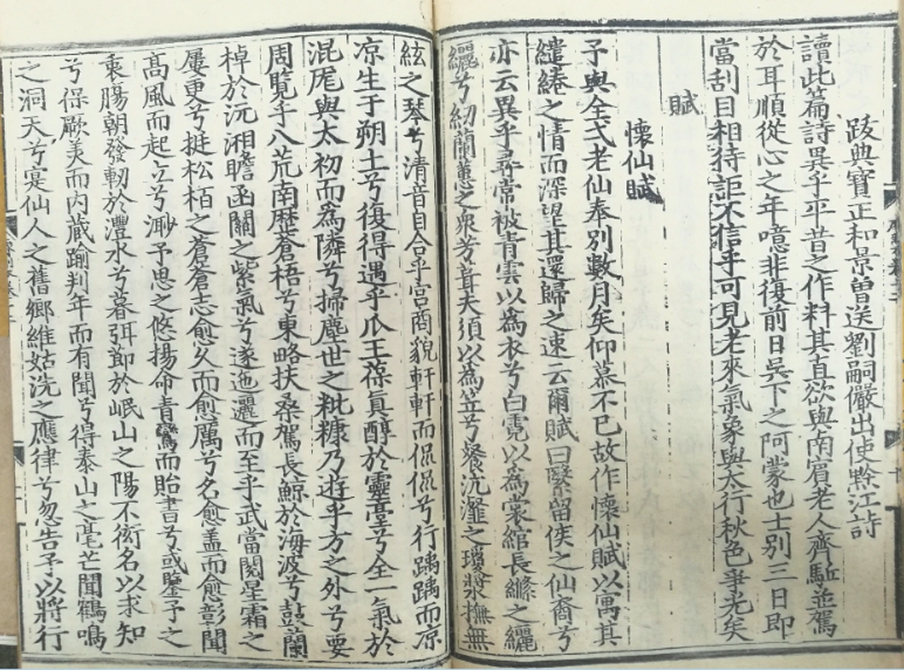 跋典寶正和景曽送劉嗣嚴出使黔江詩
讀此篇詩異乎平昔之作料其直欲與南賔老人齊駈並駕
於耳順從心之年噫非復前日吳下之阿蒙也士別三日即
當刮目相待詎不信乎可見老來氣象與太行秋色爭光矣
賦
懷仙賦
予與全弌老仙奉別數月矣仰慕不已故作懷仙賦以寓其
繾綣之情而深望其還歸之速云爾賦曰繄留侯之仙裔兮
亦云異乎尋常被青雲以爲衣兮白霓以爲裳綰長縧之纚
纚兮紉蘭蕙之衆芳葺夫須以爲笠兮飱沆瀣之瓊漿撫無
絃之琴兮清音自合乎宮商貌軒軒而侃侃兮行踽踽而凉
凉生于朔土兮復得遇乎爪王葆眞醇於靈臺兮全一氣於
混厖與太初而爲隣兮掃塵世之粃糠乃遊乎方之外兮要
周覧乎八荒南歴蒼梧兮東略扶桑駕長鯨於海波兮鼓蘭
棹於沅湘瞻函關之紫氣兮遂迤邐而至乎武當閱星霜之
屢更兮挺松栢之蒼蒼志愈久而愈厲兮名愈盖而愈彰聞
髙風而起立兮渺予思之悠揚命青鸞而貽書兮或鑒予之
衷腸朝發軔於灃水兮暮弭節於岷山之陽不衒名以求知
兮保厥美而内蔵踰判年而有聞兮得泰山之毫芒聞鶴鳴
之洞天兮寔仙人之舊鄉維姑洗之應律兮忽告予以將行